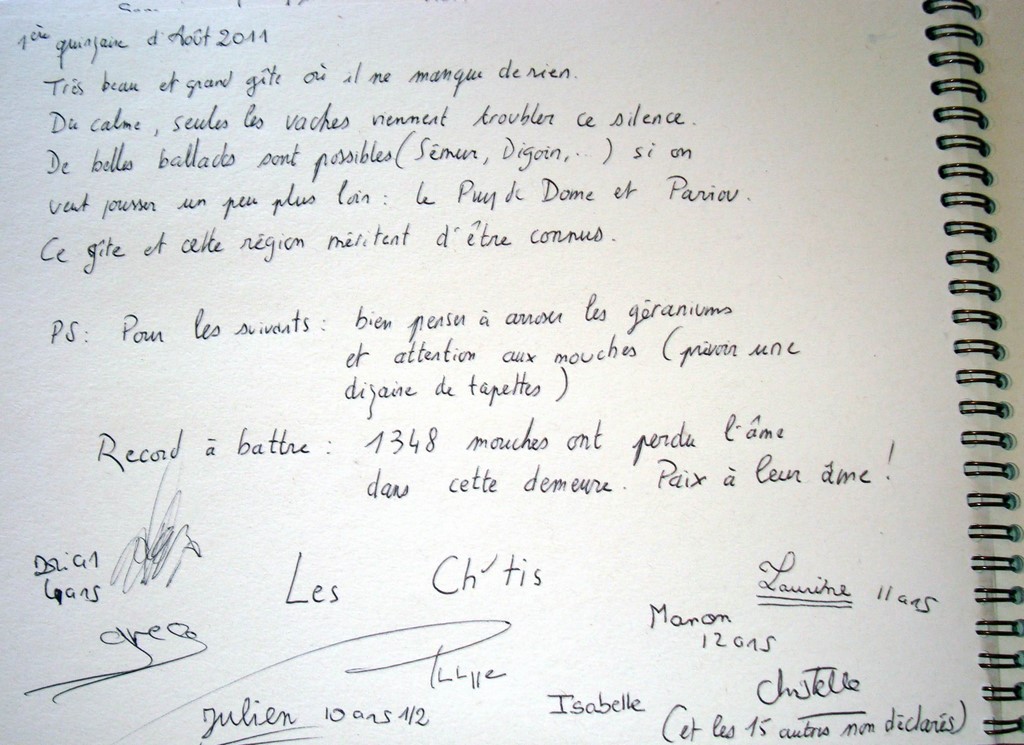 1ère quinzaine d'Août 2011
Très beau et grand gîte où il ne manque de rien.
Du calme, seules les vaches viennent troubler ce silence.
De belles ballades sont possibles (Sêmur, Digoin,...) si on
veut pousser un peu plus loin : le Puy de Dome et Pariou.
Ce gîte et cette région méritent d'être connus.
PS: Pour les suivants : bien penser à arroser les géraniums
et attention aux mouches (prévoir une
dizaine de tapettes)
Record à battre : 1348 mouches ont perdu l'âme
dans cette demeure. Paix à leur âme !
Dorian
4 ans
Les Ch'tis
Laurine 11 ans
Manon
12 ans
Greg
Julien 10 ans 1/2
Isabelle
Christelle
(et les 15 autres non déclarés)